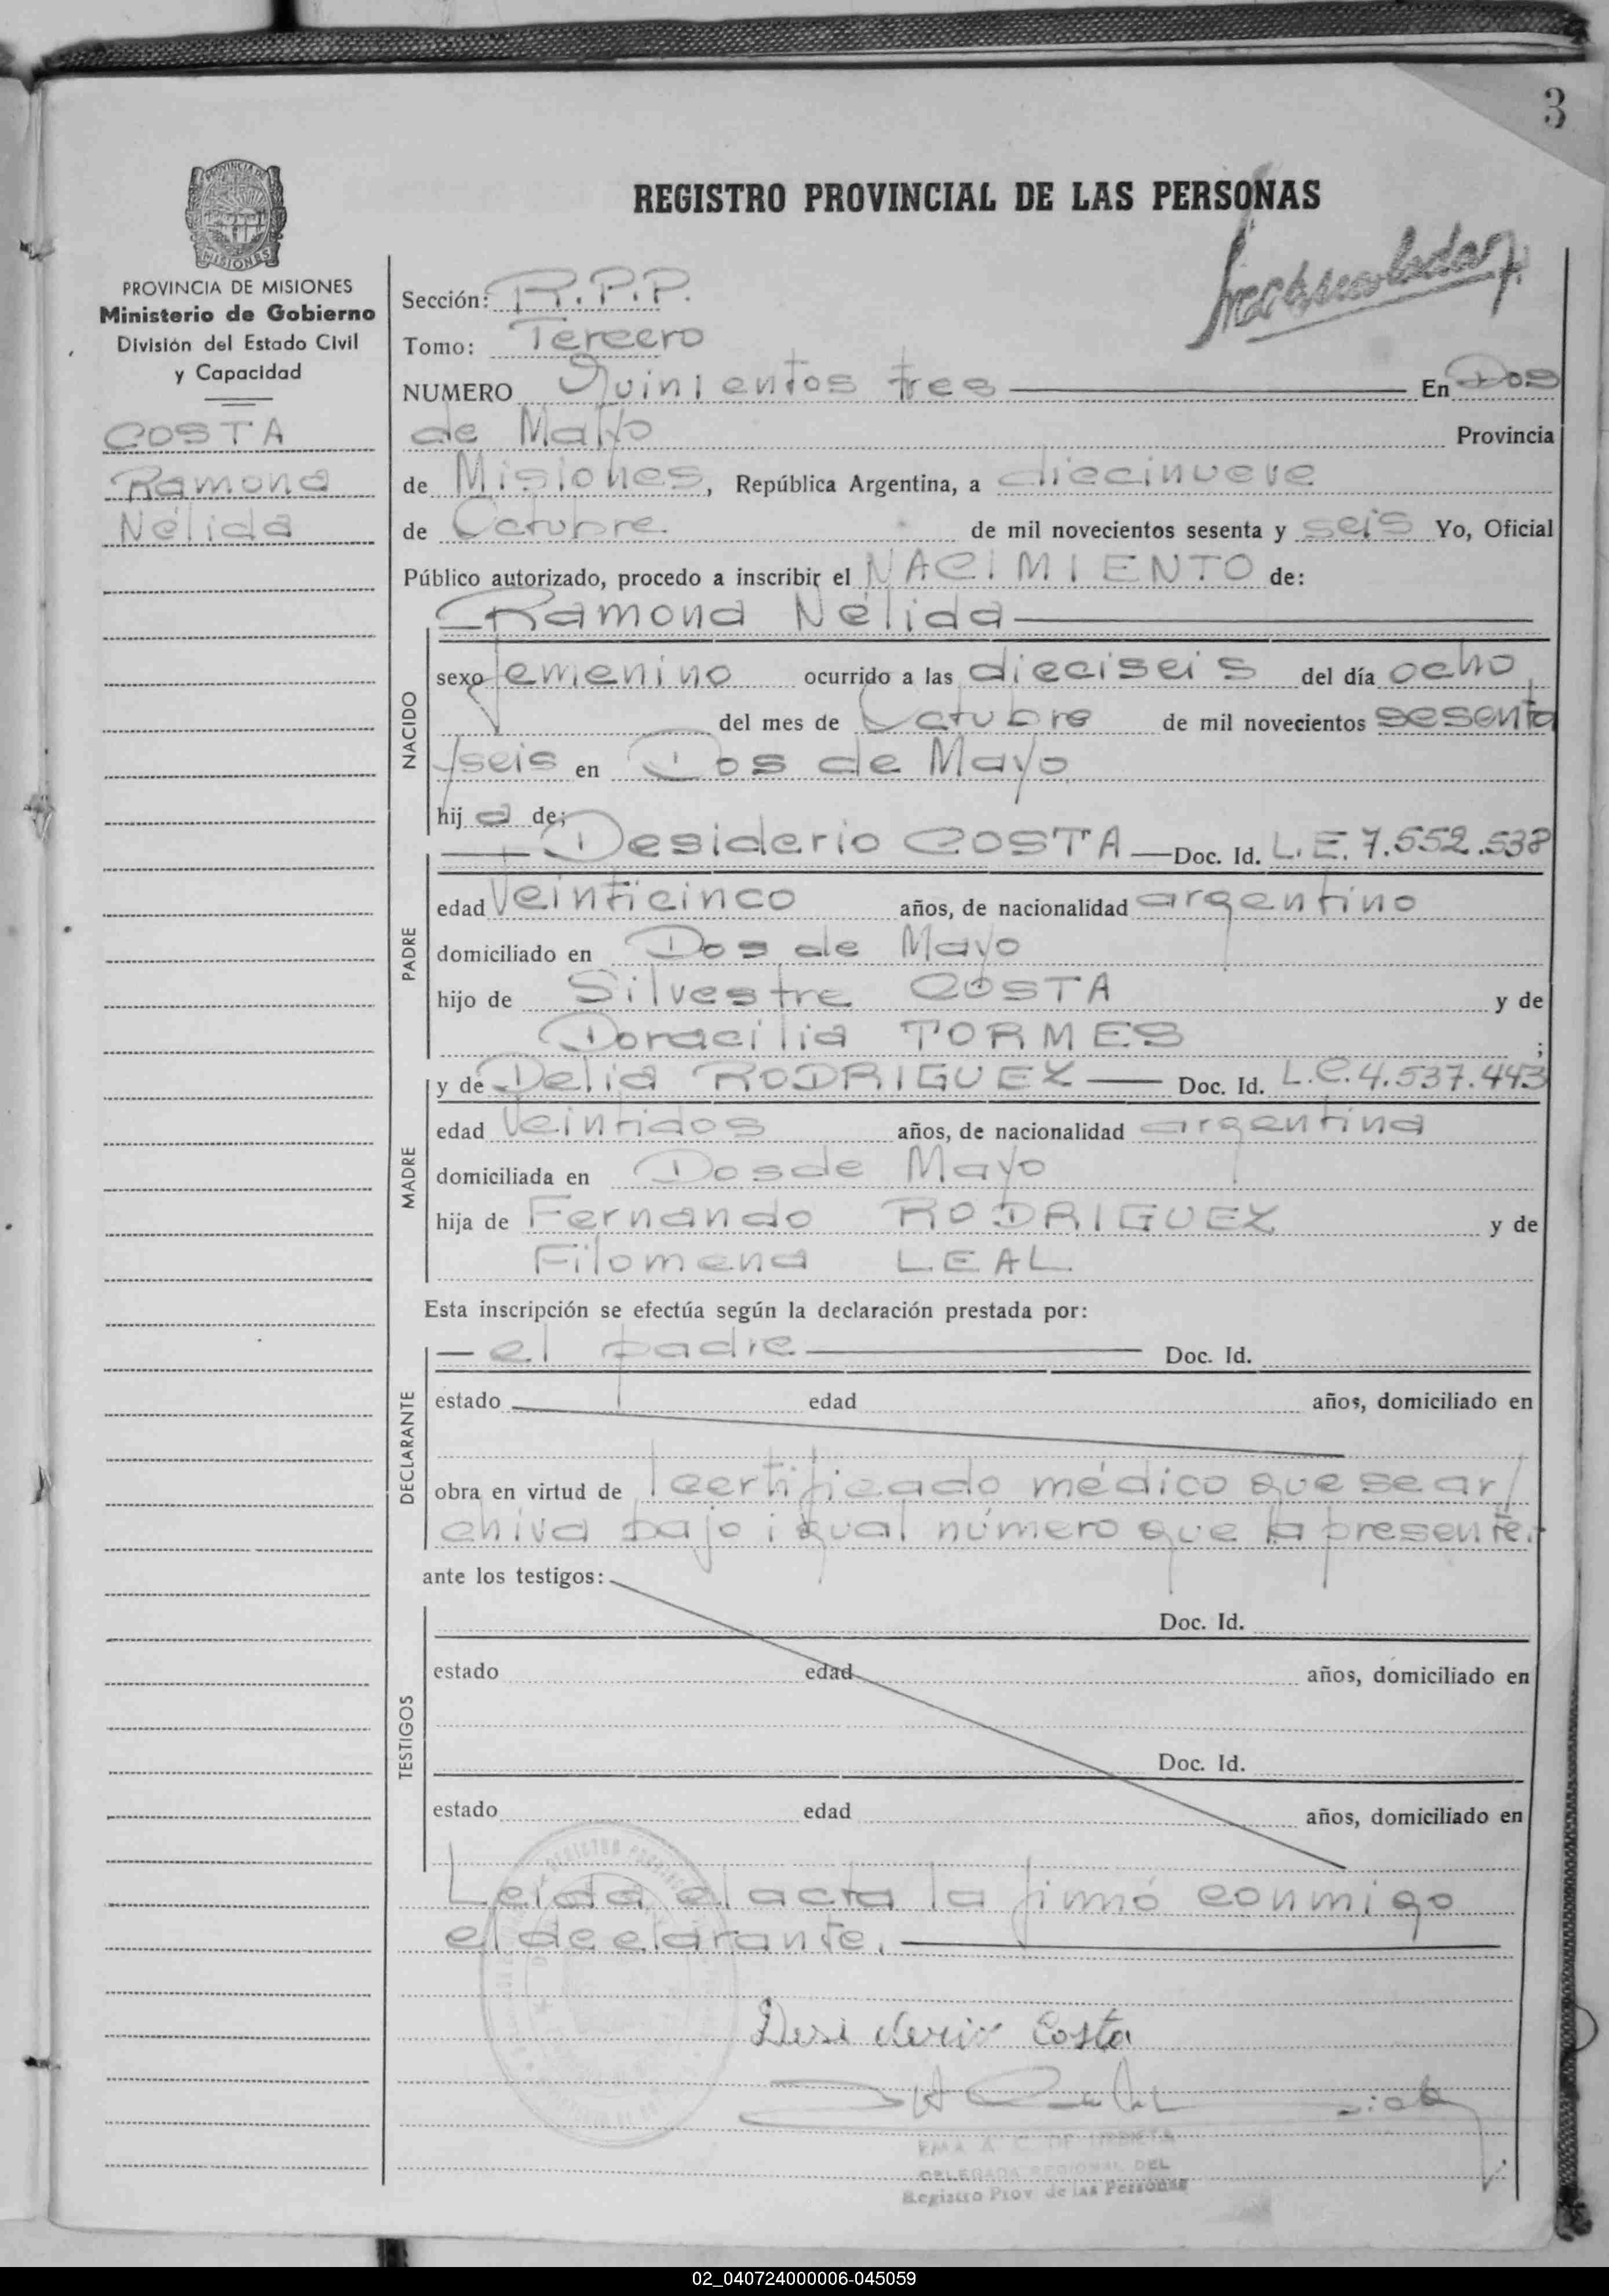 3
REGISTRO PROVINCIAL DE LAS PERSONAS
PROVINCIA DE MISIONES
Ministerio de Gobierno
División del Estado Civil
y Capacidad
COSTA
Ramona
Nélida
Sección: R.P.P.
Tomo: Tercero
NUMERO Quinientos tres En Dos
de Mayo Provincia
de Misiones, República Argentina, a diecinueve
de Octubre de mil novecientos sesenta y seis Yo, Oficial
Público autorizado, procedo a inscribir el NACIMIENTO de:
Ramona Nélida
NACIDO
sexo femenino ocurrido a las dieciseis del día ocho
del mes de Octubre de mil novecientos sesenta
y seis en Dos de Mayo
hij a de;
PADRE
Desiderio COSTA Doc. Id. L.E. 7.552.538
edad Veinticinco años, de nacionalidad argentino
domiciliado en Dos de Mayo
hijo de Silvestre COSTA y de
Doracilia TORMES ;
MADRE
y de Delia RODRIGUEZ Doc. Id. L.C. 4.537.443
edad Veintidos años, de nacionalidad argentina
domiciliada en Dos de Mayo
hija de Fernando RODRIGUEZ y de
Filomena LEAL
Esta inscripción se efectúa según la declaración prestada por:
DECLARANTE
el padre Doc. Id.
estado edad años, domiciliado en
obra en virtud de certificado médico que se ar/
chiva bajo igual número que la presente.
ante los testigos:
TESTIGOS
Doc. Id.
estado edad años, domiciliado en
Doc. Id.
estado edad años, domiciliado en
Leida el acta la firmó conmigo
el declarante.
Desiderio Costa
EMA A. C. DE URBIETA
DELEGADA REGIONAL DEL
Registro Prov. de las Personas
02_040724000006-045059